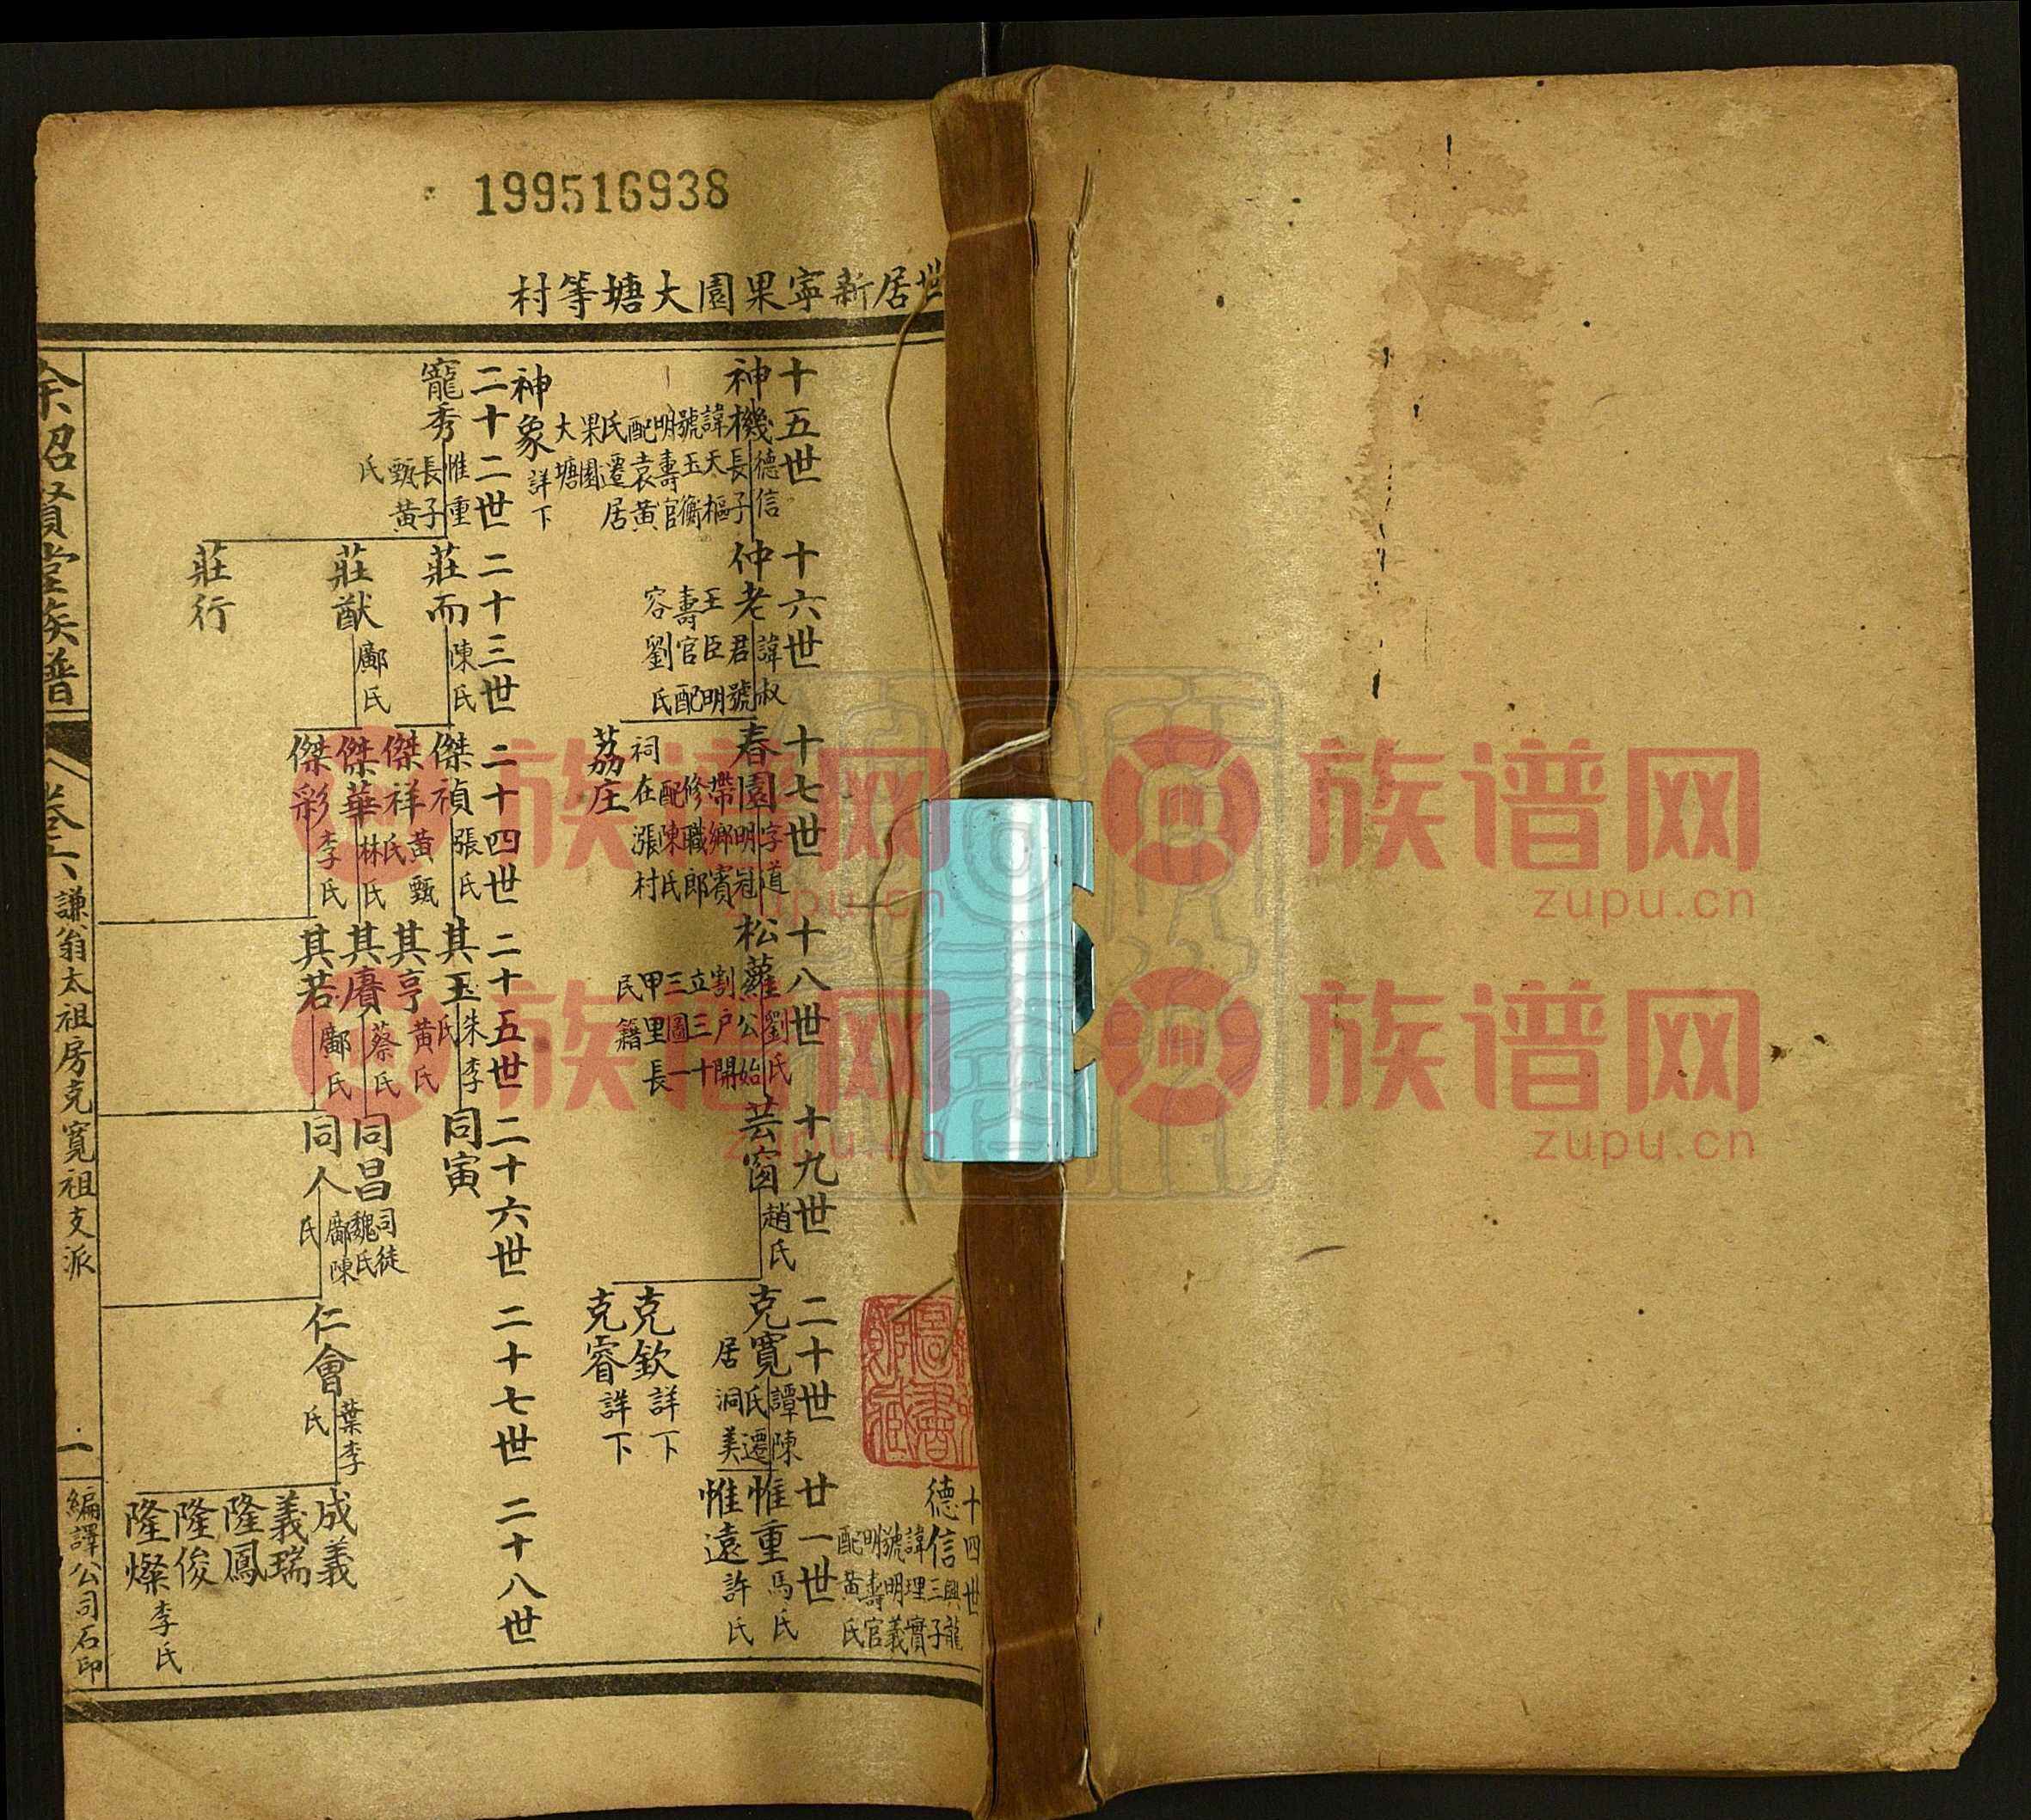 199516938
世居新寧果園大塘等村
十四世
德信 興龍三子諱理實號明義明壽官配黃氏
十五世
神機 德信長子諱天樞號玉衡明壽官配袁黃氏遷居果園大塘
神象 詳下
十六世
仲老 諱叔君號王臣明壽官配容劉氏
十七世
春園 字道明冠帶鄉賓修職郎配陳氏祠在漲村
荔庄
十八世
松蘿 劉氏公始割户開立三十三圖一甲里長民籍
十九世
芸窗 趙氏
二十世
克寬 譚陳氏遷居洞美
克欽 詳下
克睿 詳下
廿一世
惟重 馬氏
惟遠 許氏
二十二世
寵秀 惟重長子甄黃氏
二十三世
莊而 陳氏
莊猷 鄺氏
莊行
二十四世
傑禎 張氏
傑祥 黃甄氏
傑華 林氏
傑彩 李氏
二十五世
其玉 朱李氏
其亨 黃氏
其賡 蔡氏
其若 鄺氏
二十六世
同寅
同昌 司徒魏氏
同人 鄺陳氏
二十七世
仁會 葉李氏
二十八世
成義
義瑞
隆鳳
隆俊
隆燦 李氏
余昭賢堂族譜
卷六
謙翁太祖房克寬祖支派
一
編譯公司石印
族谱网
zupu.cn
族谱网
zupu.cn
族谱网
zupu.cn
族谱网
zupu.cn